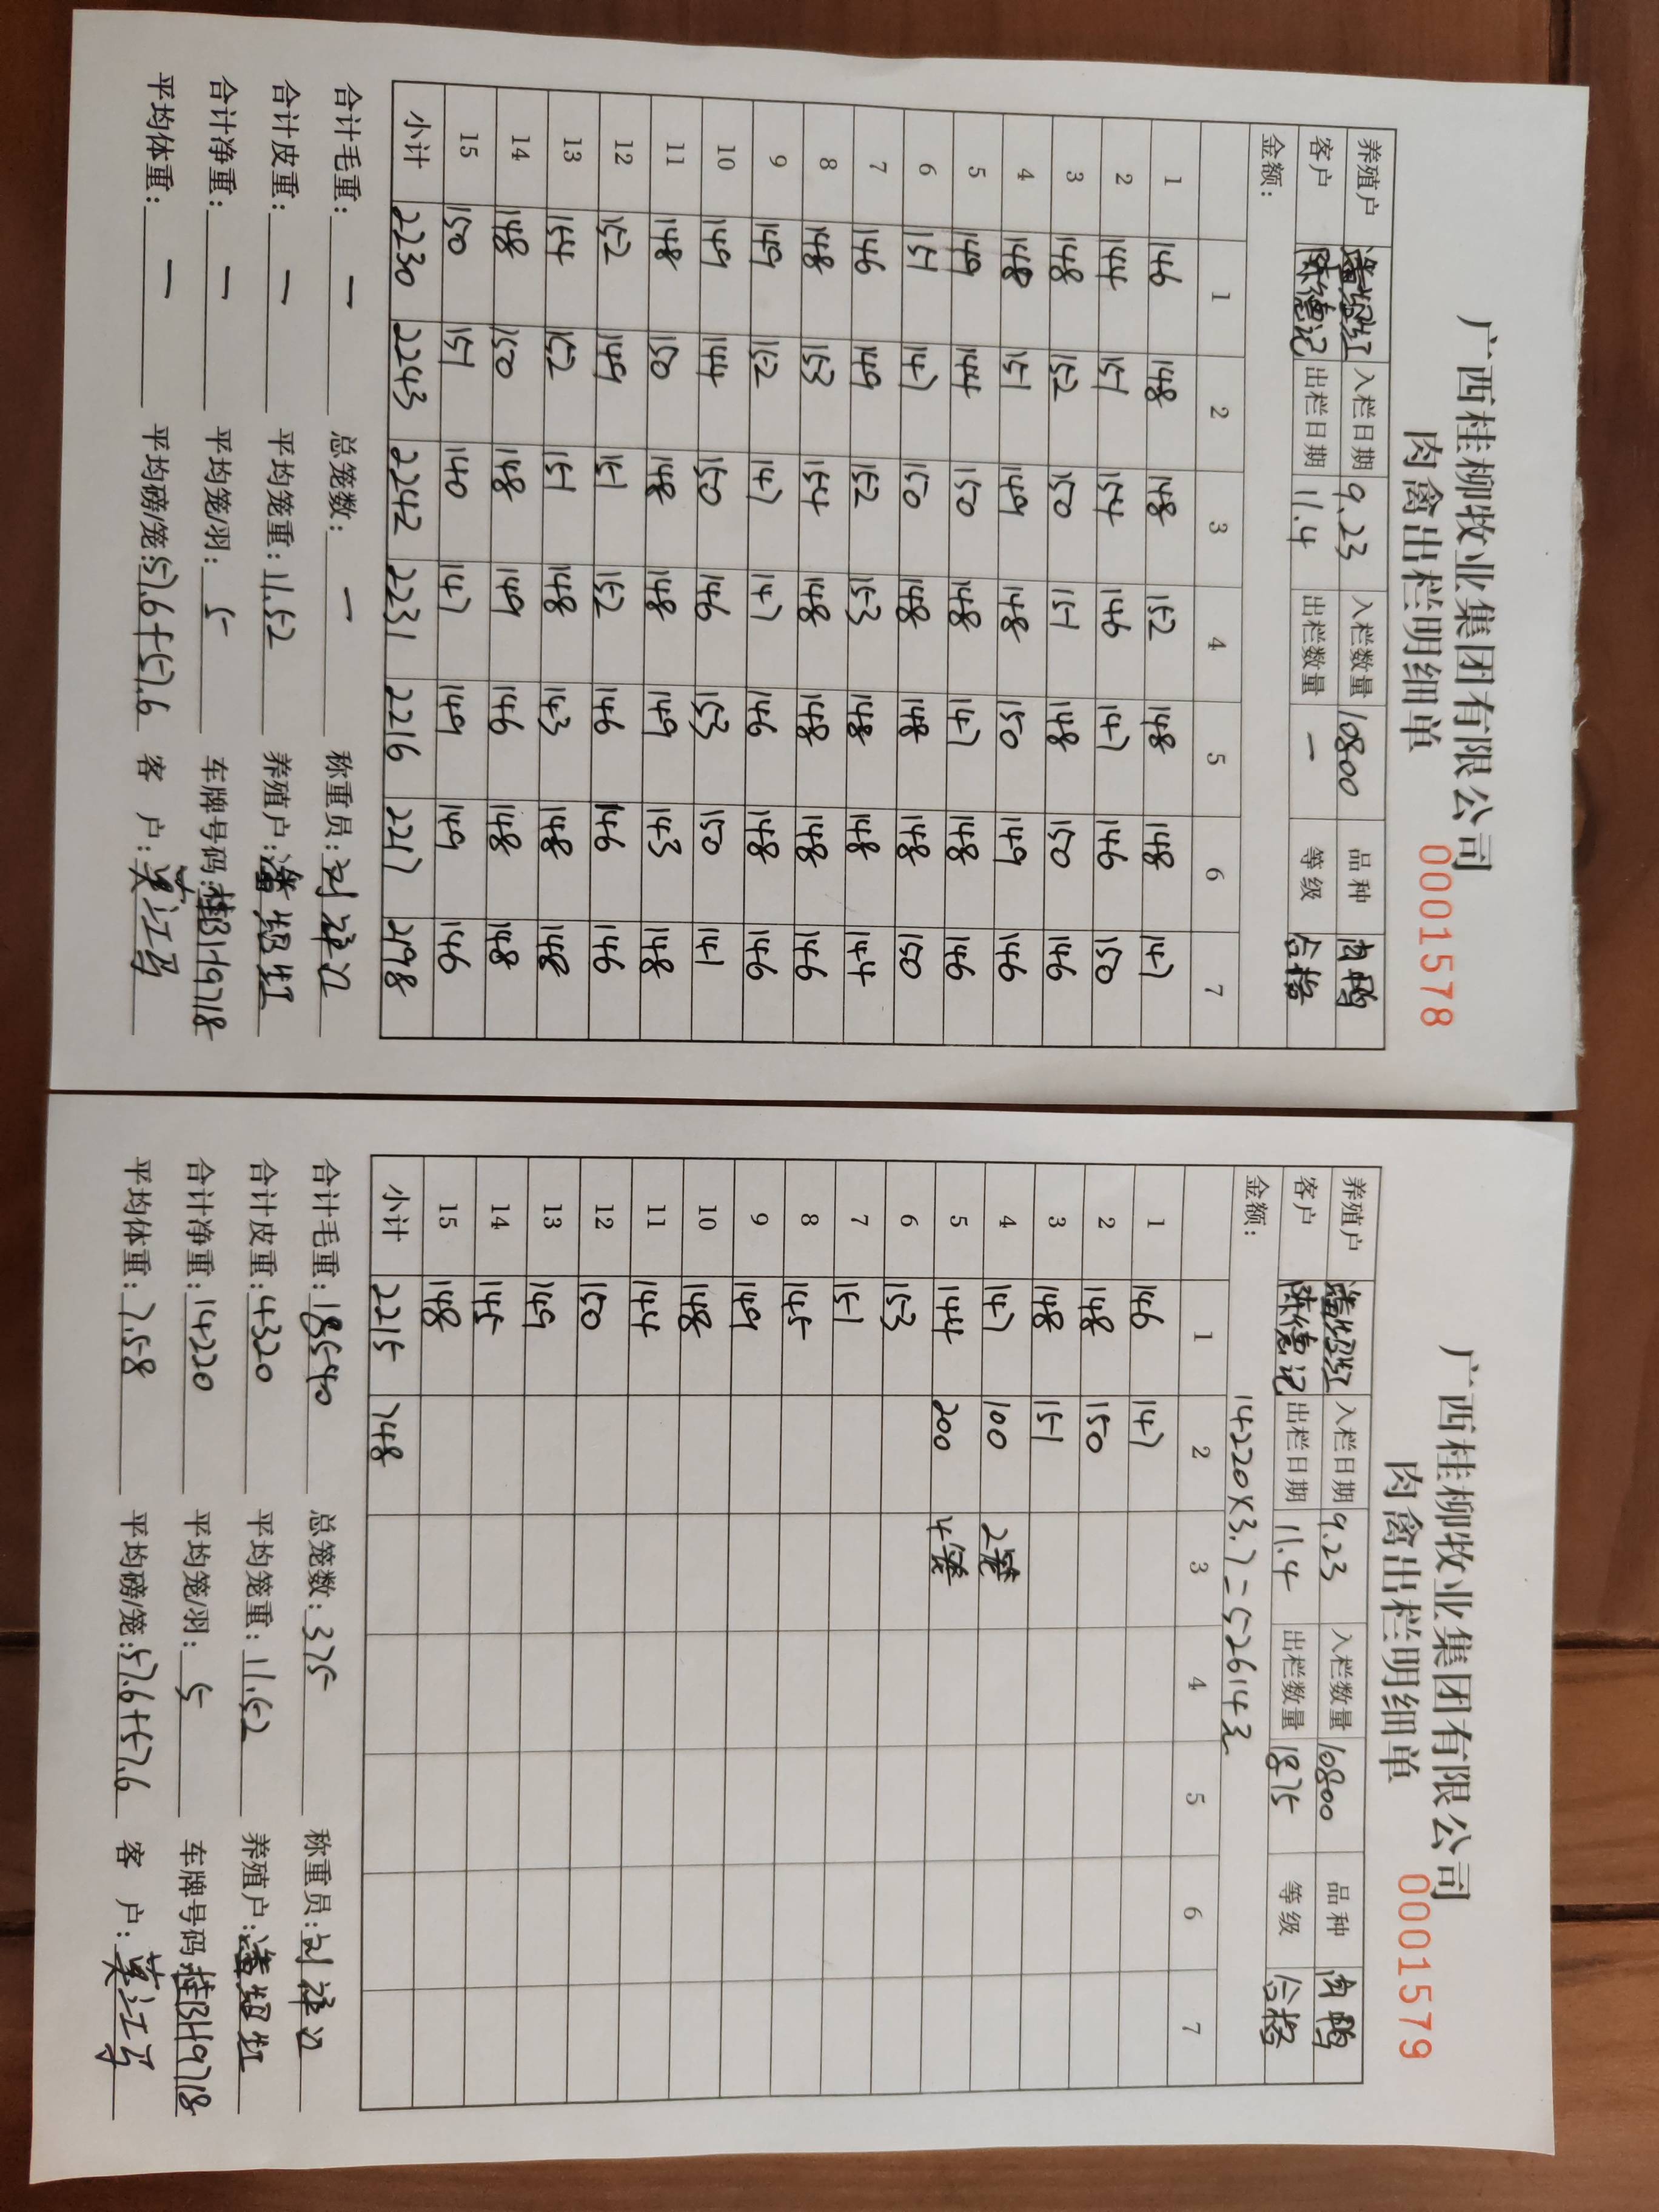 广西桂柳牧业集团有限公司
肉禽出栏明细单 0001578
养殖户 潘绍红 入栏日期 9.23 入栏数量 10800 品种 肉鸭
客户 陈德记 出栏日期 11.4 出栏数量 — 等级 合格
金额：
1 2 3 4 5 6 7
1 146 148 148 152 148 148 147
2 144 151 154 146 147 146 150
3 148 152 150 151 148 150 146
4 148 151 149 148 150 149 146
5 149 144 150 148 147 148 146
6 151 147 150 148 148 148 150
7 146 149 152 153 148 148 144
8 148 153 154 148 148 148 146
9 149 152 147 147 146 148 146
10 149 144 150 146 153 150 141
11 148 150 148 148 149 143 148
12 152 149 151 152 146 146 146
13 154 152 151 148 143 148 148
14 148 150 148 149 146 148 148
15 150 151 140 147 149 149 146
小计 2230 2243 2242 2231 2216 2217 2198
合计毛重：— 总笼数：— 称重员：刘
合计皮重：— 平均笼重：11.52 养殖户：潘绍红
合计净重：— 平均笼/羽：5 车牌号码：桂BH9718
平均体重：— 平均磅/笼：57.6+57.6 客户：莫江
广西桂柳牧业集团有限公司
肉禽出栏明细单 0001579
养殖户 潘绍红 入栏日期 9.23 入栏数量 10800 品种 肉鸭
客户 陈德记 出栏日期 11.4 出栏数量 1875 等级 合格
金额：14220×3.7=52614元
1 2 3 4 5 6 7
1 146 147
2 148 150
3 148 151
4 147 100 2笼
5 144 200 4笼
6 153
7 151
8 145
9 149
10 148
11 144
12 150
13 149
14 145
15 148
小计 2215 748
合计毛重：18540 总笼数：375 称重员：刘
合计皮重：4320 平均笼重：11.52 养殖户：潘绍红
合计净重：14220 平均笼/羽：5 车牌号码：桂BH9718
平均体重：7.58 平均磅/笼：57.6+57.6 客户：莫江